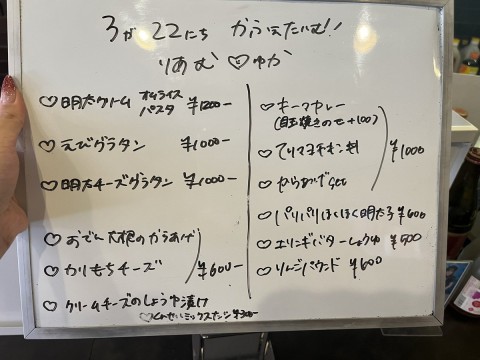 3が22にち かふぇたいむ!!
りあむ♡ゆか
♡明太クリーム オムライス パスタ ¥1200-
♡えびグラタン ¥1000-
♡明太チーズグラタン ¥1000-
♡おでん大根のからあげ
♡カリもちチーズ ¥600-
♡クリームチーズのしょうゆ漬け
♡くんせいミックスナッツ ¥300-
♡キーマカレー
(目玉焼きのせ+100)
♡てりマヨチキン丼 ¥1000
♡からあげset
♡パリパリほくほく明太 ¥600
♡エリンギバターしょうゆ ¥500
♡りんごパウンド ¥600